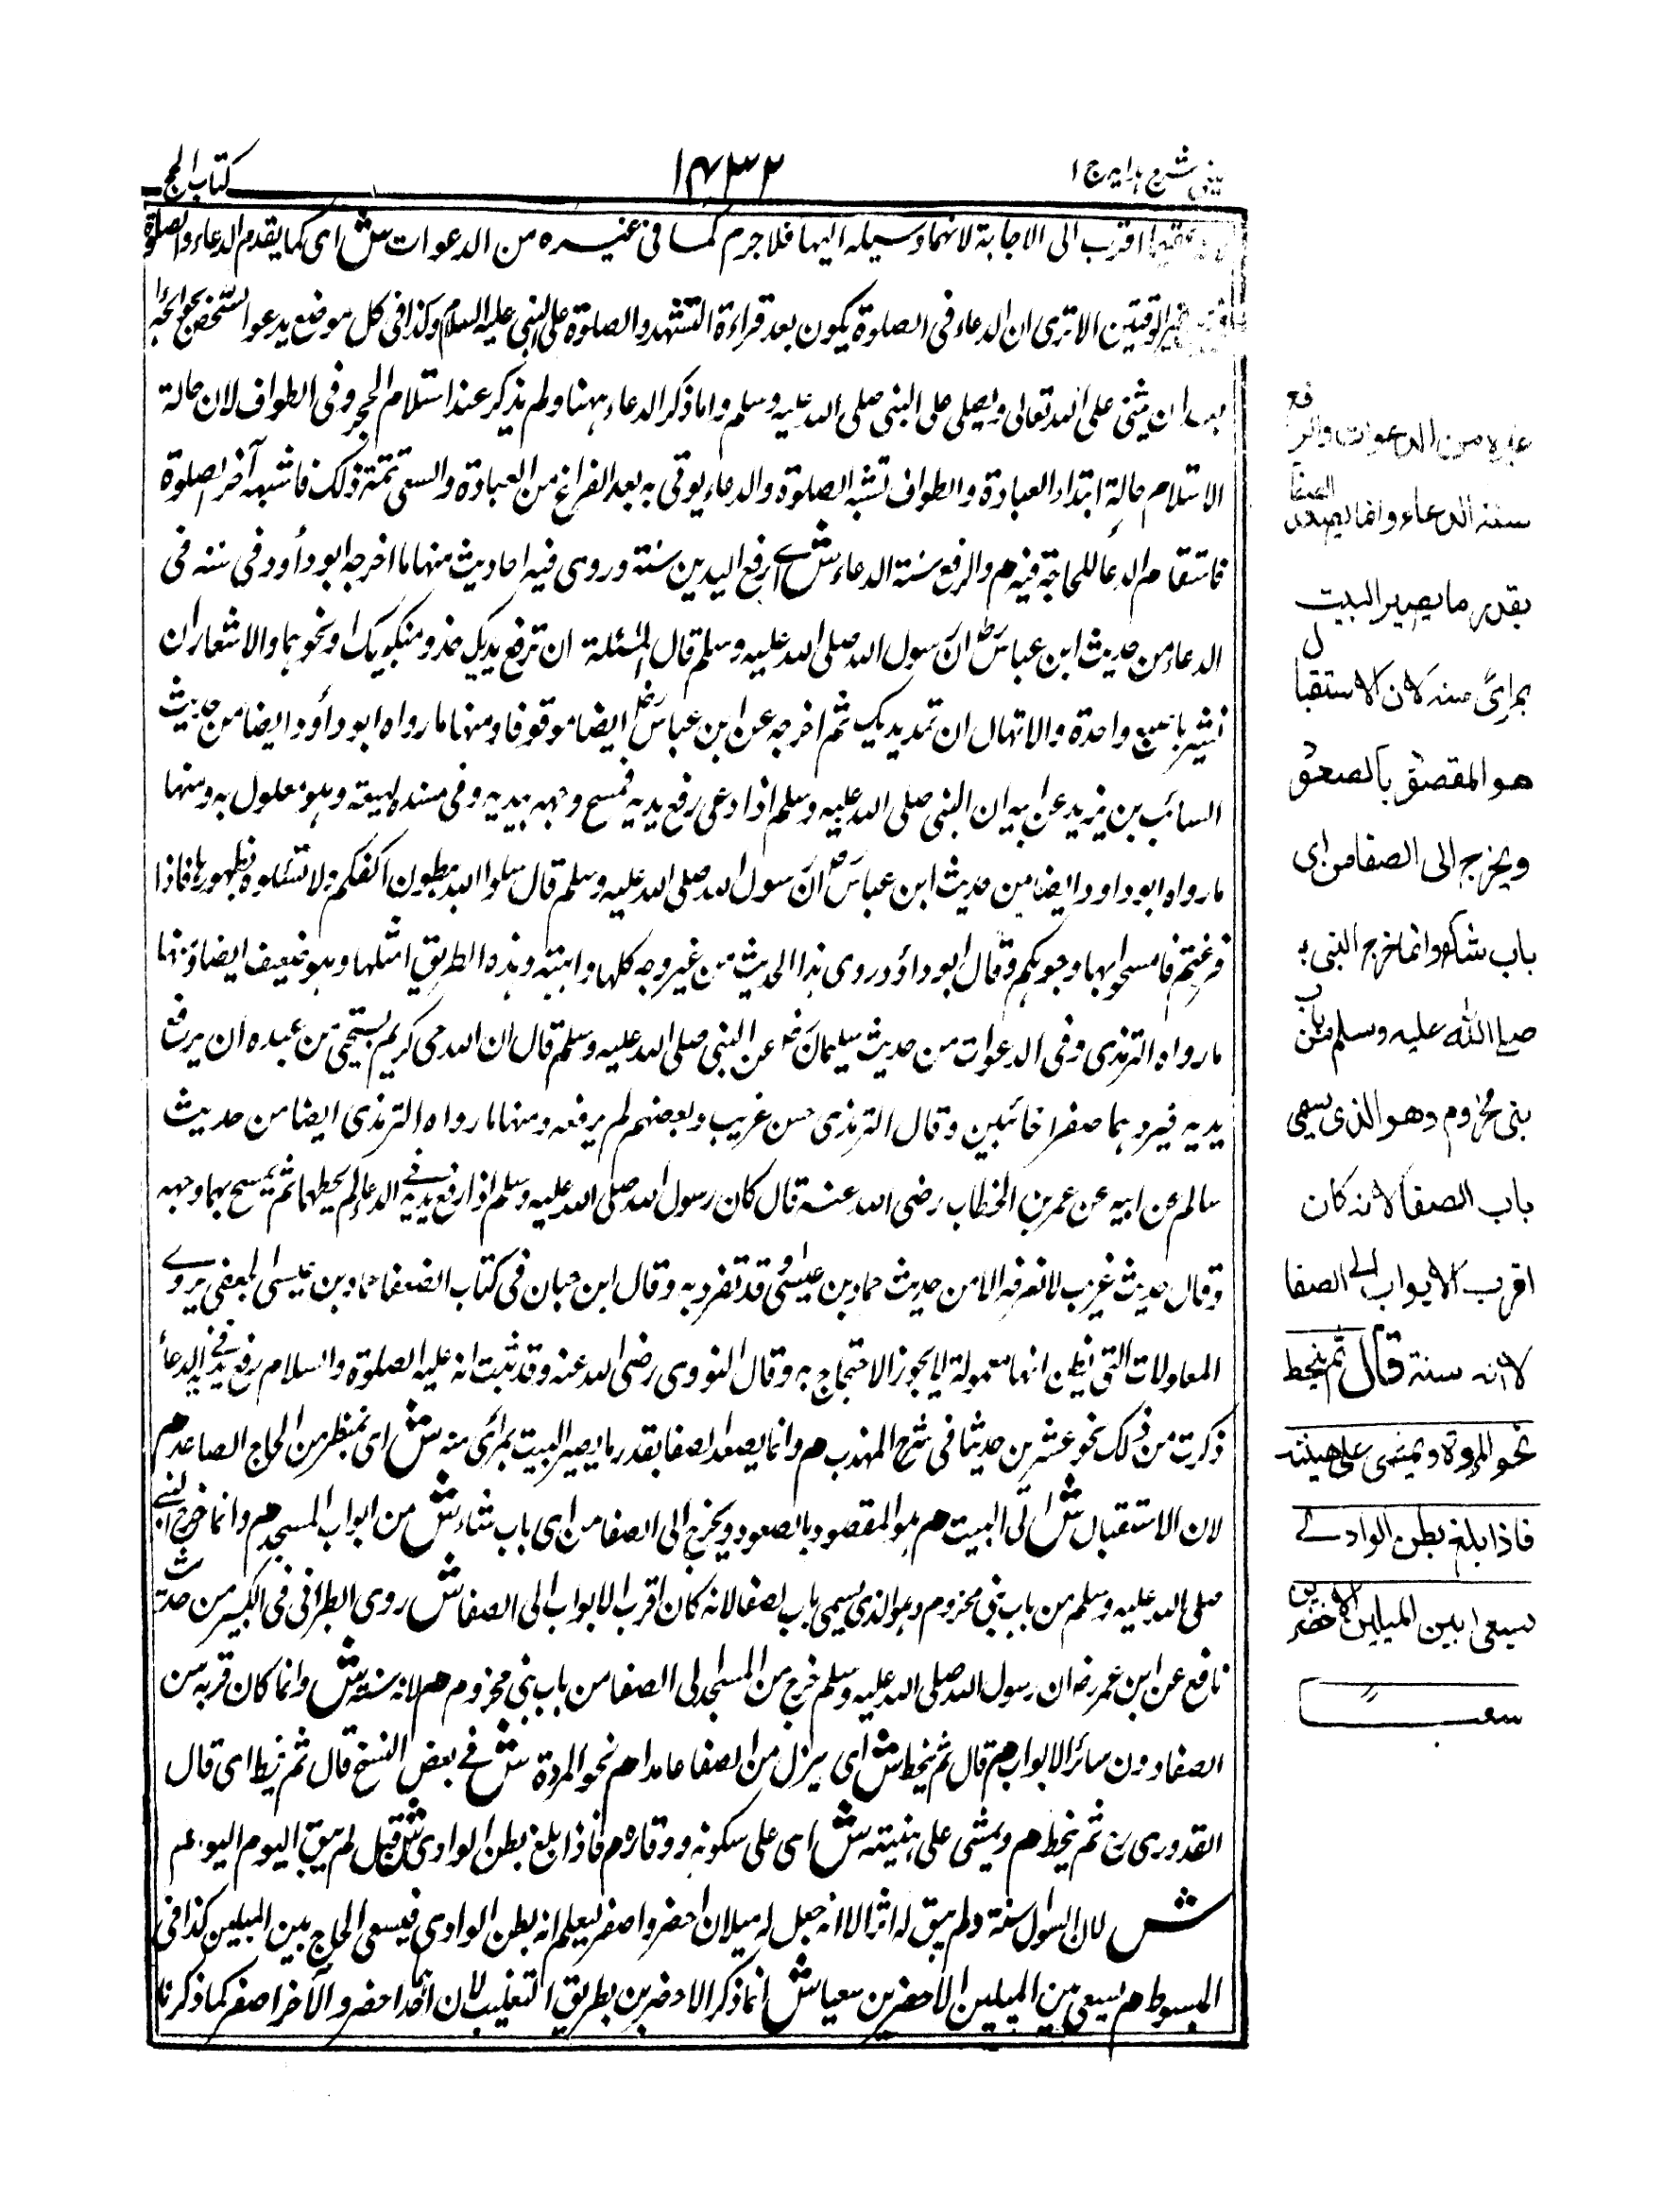 عینی شرح ہدایہ ج ۱
۱۴۳۲
کتاب الحج
اقرب الی الاجابة لانهما وسیلة الیها فلا جرم کما فی غیره من الدعوات ش ای کما یقدم الدعاء والصلوة
الوقتین الا تری ان الدعاء فی الصلوة یکون بعد قراءة التشهد والصلوة علی النبی علیه السلام وکذا فی کل موضع یدعو الشخص بحوائجه
بعد ان یثنی علی الله تعالی ویصلی علی النبی صلی الله علیه وسلم وانما ذکر الدعاء ههنا ولم یذکر عند استلام الحجر وفی الطواف لان حالة
الاستلام حالة ابتداء العبادة والطواف تشبه الصلوة والدعاء یوتی به بعد الفراغ من العبادة والسعی تتمة ذلک فاشبه آخر الصلوة
فاستقام الدعأ للحاجة فیه م والرفع سنة الدعاء ش ای رفع الیدین سنة وروی فیه احادیث منها ما اخرجه ابو دأود فی سننه فی
الدعاء من حدیث ابن عباس رض ان رسول الله صلی الله علیه وسلم قال المسئلة ان ترفع یدیک حذو منکبیک او نحوهما والاشعار ان
تشیر باصبع واحدة والابتهال ان تمد یدیک ثم اخرجه عن ابن عباس رض ایضا موقوفا ومنها ما رواه ابو دأود ایضا من حدیث
السائب بن یزید عن ابیه ان النبی صلی الله علیه وسلم اذا دعی رفع یدیه فمسح وجهه بیدیه وفی سنده لهیعة وهو معلول به ومنها
ما رواه ابو داود ایضا من حدیث ابن عباس رض ان رسول الله صلی الله علیه وسلم قال سلوا الله ببطون اکفکم ولا تسئلوه بظهورها فاذا
فرغتم فامسحوا بها وجوهکم وقال ابو داؤد روی هذا الحدیث من غیر وجه کلها واهیة وهذه الطریق امثلها وهو ضعیف ایضا ومنها
ما رواه الترمذی وفی الدعوات من حدیث سلیمان رض عن النبی صلی الله علیه وسلم قال ان الله حی کریم یستحیی من عبده ان یرفع
یدیه فیردهما صفرا خائبین وقال الترمذی حسن غریب وبعضهم لم یرفعه ومنها ما رواه الترمذی ایضا من حدیث
سالم عن ابیه عن عمر بن الخطاب رضی الله عنه قال کان رسول الله صلی الله علیه وسلم اذا رفع یدیه فی الدعاء لم یحطهما ثم یمسح بهما وجهه
وقال حدیث غریب لا نعرفه الا من حدیث حماد بن عیسی وقد تفرد به وقال ابن حبان فی کتاب الضعفا حماد بن عیسی الجعفی یروے
المعاولات التی یظن انها معمولة لا یجوز الاحتجاج به وقال النووی رضی الله عنه وقد ثبت انه علیه الصلوة والسلام رفع یدیه فی الدعأ
ذکرت من ذلک نحو عشرین حدیثا فی شرح المهذب م وانما یصعد الصفا بقدر ما یصیر البیت بمرأی منه ش ای بمنظر من الحاج الصاعد م
لان الاستقبال ش ای الی البیت م هو المقصود بالصعود ویخرج الی الصفا من ای باب شاء ش من ابواب المسجد م وانما خرج النبی
صلی الله علیه وسلم من باب بنی مخزوم وهو الذی یسمی باب الصفا لانه کان اقرب الابواب الی الصفا ش روی الطبرانی فی الکبیر من حدیث
نافع عن ابن عمر رض ان رسول الله صلی الله علیه وسلم خرج من المسجد الی الصفا من باب بنی مخزوم م لانه سنة ش وانما کان قربه من
الصفا دون سائر الابواب م قال ثم ینحط ش ای ینزل من الصفا عامدا م نحو المروة ش فی بعض النسخ قال ثم ینحط ای قال
القدوری رح ثم ینحط م ویمشی علی هینته ش ای علی سکونه ووقاره م فاذا بلغ بطن الوادی ش قیل لم یبق الیوم
ش لان السیول ولم یبق له اثر الا انه جعل له میلان اخضر واصفر لیعلم انه بطن الوادی فیسعی الحاج بین المیلین کذا فی
المبسوط م یسعی بین المیلین الاخضرین سعیا ش انما ذکر الاخضرین بطریق التغلیب لان احدا اخضر والآخر اصفر کما ذکرنا
غیره من الدعوات والرفع
سنة الدعاء وانما یصعد الصفا
بقدر ما یصیر البیت
بمرأی منه لان الاستقبال
هو المقصود بالصعود
ویخرج الی الصفا من ای
باب شاء وانما خرج النبی
صلے الله علیه وسلم من باب
بنی مخزوم وهو الذی یسمی
باب الصفا لانه کان
اقرب الابواب الے الصفا
لانه سنة قال ثم ینحط
نحو المروة ویمشی علی هینته
فاذا بلغ بطن الوادے
یسعی بین المیلین الاخضرین
سعیا